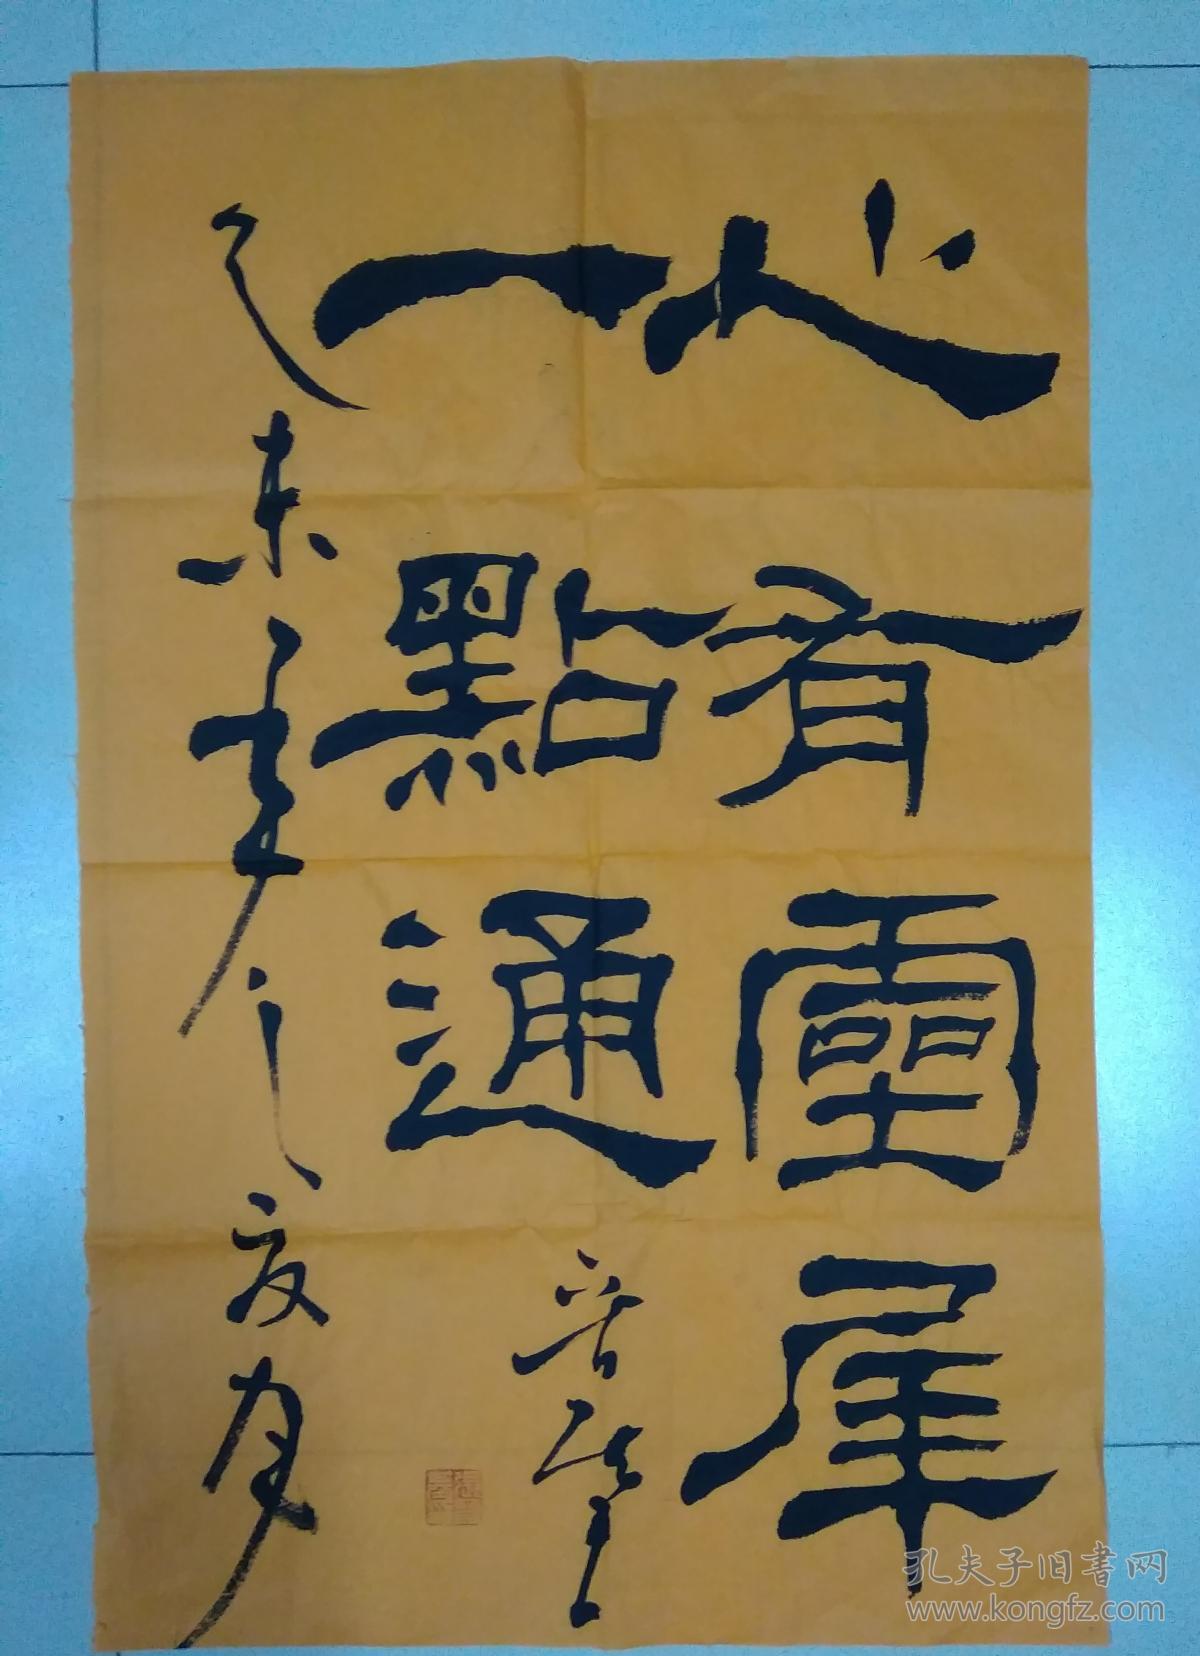 心有靈犀
一點通
乙未年之夏月
孔夫子旧書网
www.kongfz.com